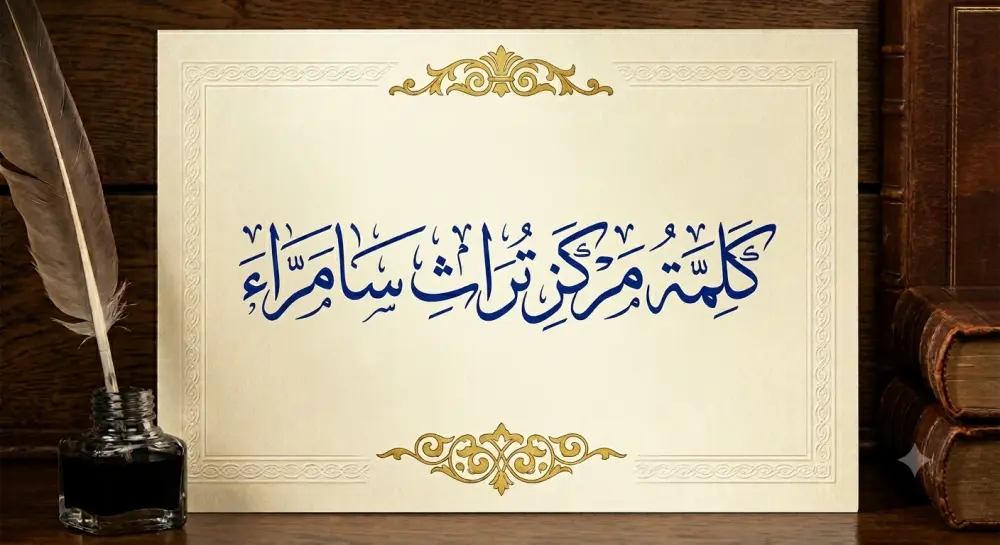 كَلِمَّةُ مَرْكَزِ تُرَاثِ سَامَرَّاءَ